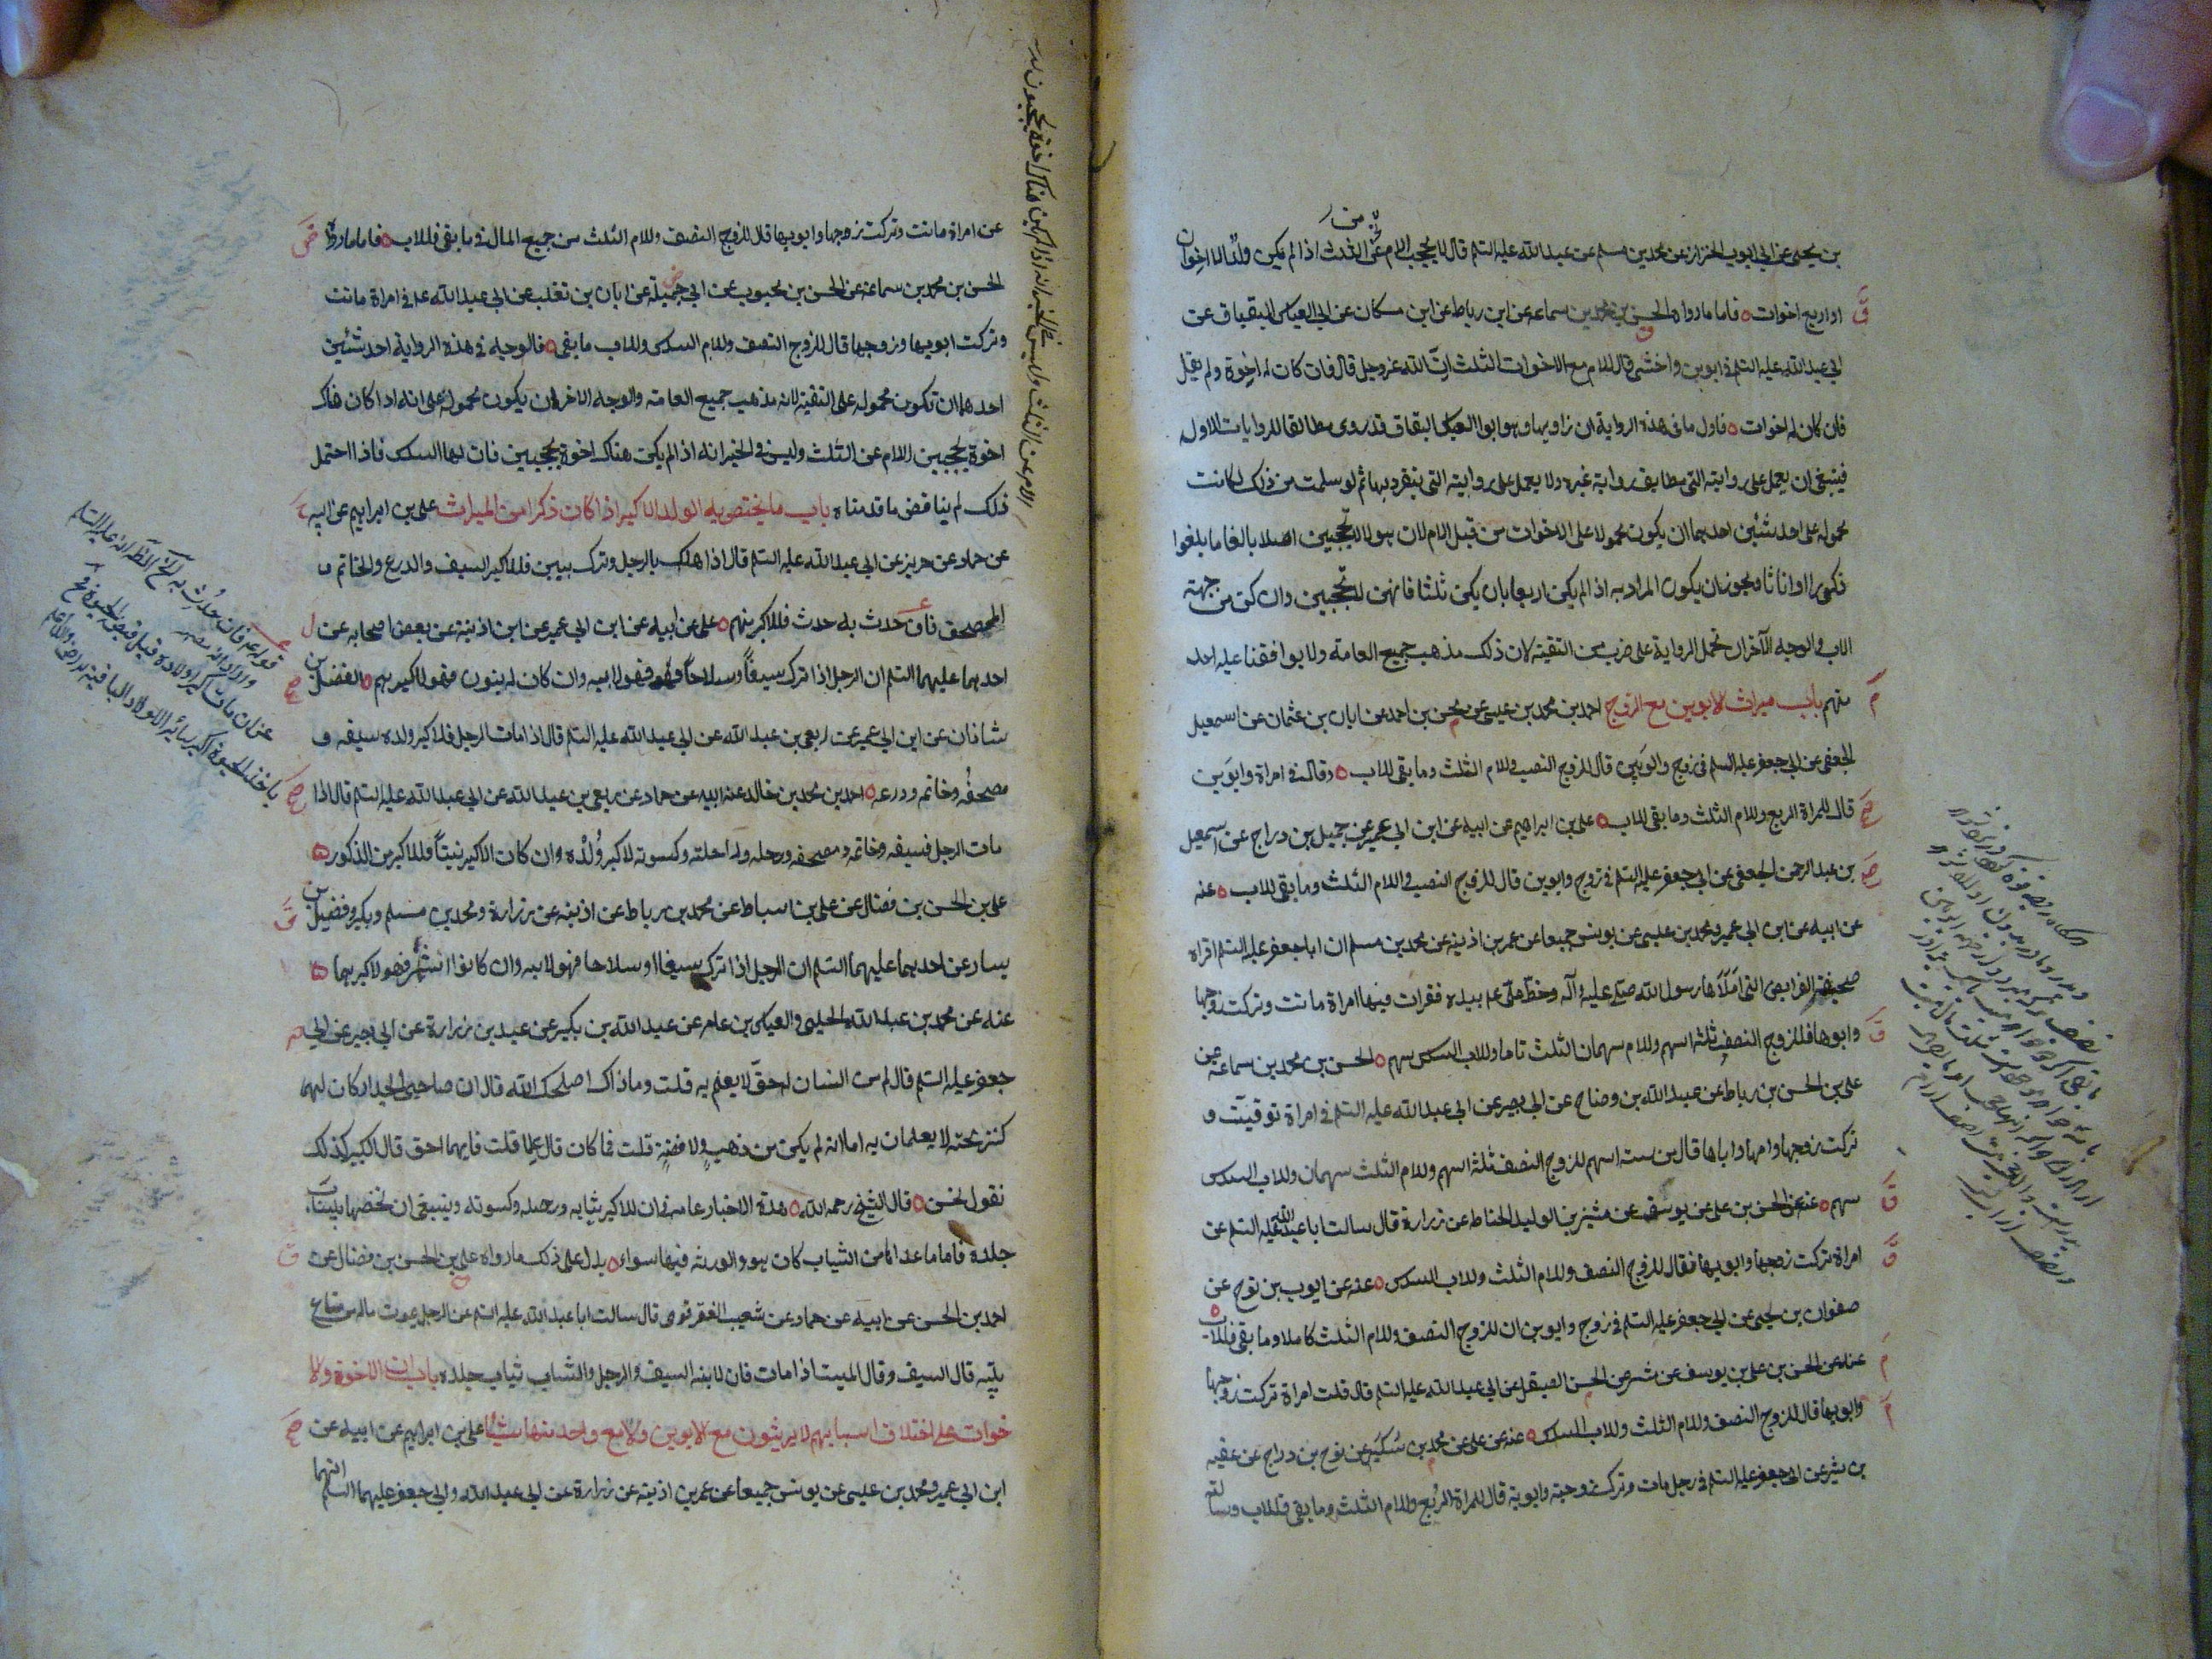 بن يحيى عن ابى ايوب الخزاز عن محمد بن مسلم عن عبد الله عليه السلم قال لا يحجب الام عن الثلث اذا لم يكن ولد الا اخوان
او اربع اخوات فاما ما رواه الحسن بن محمد بن سماعه عن ابن رباط عن ابن مسكان عن ابى العباس البقباق عن
ابى عبد الله عليه السلم فى ابوين واختين قال للام مع الاخوات الثلث ان الله عز وجل قال فان كان له اخوة ولم يقل
فان كان له اخوات فاول ما فى هذه الرواية ان راويها وهو ابو العباس البقباق قد روى مطابقا للروايات الاوله
فينبغى ان يعمل على روايته التى يطابق رواية غيره ولا يعمل على روايته التى ينفرد بها ثم لو سلمت من ذلك لكانت
محموله على احد شئين احدهما ان يكون محمولا على الاخوات من قبل الام لان هولا لا يحجبن اصلا بالغا ما بلغوا
ذكورا او اناثا ويجوز ان يكون المراد به اذا لم يكن اربعا بان يكن ثلثا فانهن لا يحجبن وان كن من جهة
الاب والوجه الآخر ان نحمل الرواية على ضرب من التقية لان ذلك مذهب جميع العامة ولا يوافقنا عليه احد
منهم باب ميراث الابوين مع الزوج احمد بن محمد بن عيسى عن محسن بن احمد عن ابان بن عثمان عن اسمعيل
الجعفى عن ابى جعفر عليه السلم فى زوج وابوين قال للزوج النصف وللام الثلث وما بقى للاب وقال فى امراة وابوين
قال للمراة الربع وللام الثلث وما بقى للاب على بن ابراهيم عن ابيه عن ابن ابى عمير عن جميل بن دراج عن اسمعيل
بن عبد الرحمن الجعفى عن ابى جعفر عليه السلم فى زوج وابوين قال للزوج النصف وللام الثلث وما بقى للاب عنه
عن ابيه عن ابن ابى عمير ومحمد بن عيسى عن يونس جميعا عن عمر بن اذينه عن محمد بن مسلم ان ابا جعفر عليه السلم اقراه
صحيفة الفرايض التى املاها رسول الله صلى عليه وآله وخط على ع بيده فقرات فيها امراة ماتت وتركت زوجها
وابوها فللزوج النصف ثلثة اسهم وللام سهمان الثلث تاما وللاب السدس سهم الحسن بن محمد بن سماعه عن
على بن الحسن بن رباط عن عبد الله بن وضاح عن ابى بصير عن ابى عبد الله عليه السلم فى امراة توفيت و
تركت زوجها وامها واباها قال من ستة اسهم للزوج النصف ثلثة اسهم وللام الثلث سهمان وللاب السدس
سهم عنه عن الحسن بن على عن يوسف عن مثنى بن الوليد الحناط عن زرارة قال سالت ابا عبد الله عليه السلم عن
امراة تركت زوجها وابويها فقال للزوج النصف وللام الثلث وللاب السدس عنه عن ايوب بن نوح عن
صفوان بن يحيى عن ابى جعفر عليه السلم فى زوج وابوين ان للزوج النصف وللام الثلث كاملا وما بقى فللاب
عنه عن الحسن بن على بن يوسف عن مثنى عن الحسن الصيقل عن ابى عبد الله عليه السلم قال قلت امراة تركت زوجها
وابويها قال للزوج النصف وللام الثلث وللاب السدس عنه عن على عن محمد بن سكين عن نوح بن دراج عن عقبه
بن بشير عن ابى جعفر عليه السلم فى رجل مات وترك زوجته وابويه قال للمراة الربع وللام الثلث وما بقى فللاب وسالته
عن امراة ماتت وتركت زوجها وابويها قال للزوج النصف وللام الثلث من جميع المال وما بقى فللاب فاما ما رواه
الحسن بن محمد بن سماعه عن الحسن بن محبوب عن ابى جميلة عن ابان بن تغلب عن ابى عبد الله ع فى امراة ماتت
وتركت ابويها وزوجها قال للزوج النصف وللام السدس وللاب ما بقى فالوجه فى هذه الرواية احد شئين
احدهما ان تكون محموله على التقية لانه مذهب جميع العامة والوجه الاخر ان يكون محمولة على انه اذا كان هناك
اخوة يحجبن الام عن الثلث وليس فى الخبر انه اذا لم يكن هناك اخوة يحجبن فان لها السدس فاذا احتمل
ذلك لم يناقض ما قدمناه باب ما يختص به الولد الاكبر اذا كان ذكرا من الميراث على بن ابراهيم عن ابيه
عن حماد عن حريز عن ابى عبد الله عليه السلم قال اذا هلك الرجل وترك بنين فللاكبر السيف والدرع والخاتم و
المصحف فان حدث به حدث فللاكبر منهم على عن ابيه عن ابن ابى عمير عن ابن اذينة عن بعض اصحابه عن
احدهما عليهما السلم ان الرجل اذا ترك سيفا وسلاحا فهو لابنه وان كان له بنون فهو لاكبرهم الفضل بن
شاذان عن ابن ابى عمير عن ربعى بن عبد الله عن ابى عبد الله عليه السلم قال اذا مات الرجل فلاكبر ولده سيفه و
مصحفه وخاتمه ودرعه احمد بن محمد بن خالد عن ابيه عن حماد عن ربعى بن عبد الله عن ابى عبد الله عليه السلم قال اذا
مات الرجل فسيفه وخاتمه ومصحفه ورحله وراحلته وكسوته لاكبر ولده وان كان الاكبر بنتا فللاكبر من الذكور
على بن الحسن بن فضال عن على بن اسباط عن محمد بن رباط عن اذينه عن زرارة ومحمد بن مسلم وبكير وفضيل بن
يسار عن احدهما عليهما السلم ان الرجل اذا ترك سيفا او سلاحا فهو لابنه وان كانوا اثنين فهو لاكبرهما
عنه عن محمد بن عبد الله الحلبى والعباس بن عامر عن عبد الله بن بكير عن عبيد بن زرارة عن ابى بصير عن ابى
جعفر عليه السلم قال كم من انسان له حق لا يعلم به قلت وما ذاك اصلحك الله قال ان صاحبى الجدار كان لهما
كنز تحته لا يعلمان به اما انه لم يكن من ذهب ولا فضة قلت فما كان قال علما قلت فايهما احق قال الكبير كذلك
نقول نحن قال الشيخ رحمه الله هذه الاخبار عامه فى ان للاكبر ثيابه ورحله وكسوته وينبغى ان نخصها بثياب
جلده فاما ما عداها من الثياب كان هو والورثه فيها سواء يدل على ذلك ما رواه على بن الحسن بن فضال عن
احمد بن الحسن عن ابيه عن حماد عن شعيب العقرقوفى قال سالت ابا عبد الله عليه السلم عن الرجل يموت ماله من متاع
بيته قال السيف وقال الميت اذا مات فان لابنه السيف والرحل والثياب ثياب جلده باب ان الاخوة والا
خوات على اختلاف اسبابهم لا يرثون مع الابوين ولا مع واحد منهما شيئا على بن ابراهيم عن ابيه عن
ابن ابى عمير ومحمد بن عيسى عن يونس جميعا عن عمر بن اذينه عن زرارة عن ابى عبد الله وابى جعفر عليهما السلم انهما